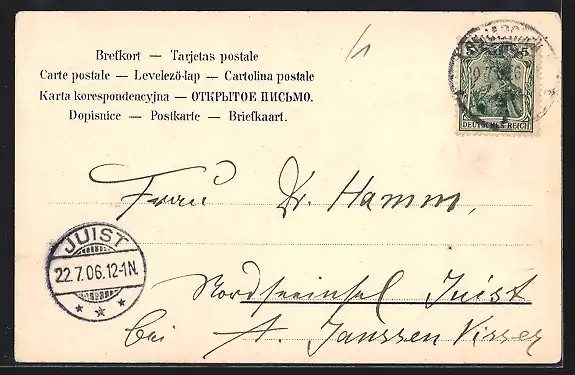 Brefkort — Tarjetas postale
Carte postale — Levelező-lap — Cartolina postale
Karta korespondencyjna — ОТКРЫТОЕ ПИСЬМО.
Dopisnice — Postkarte — Briefkaart.
5 5
DEUTSCHES REICH
Frau Dr. Hamm,
JUIST
22.7.06.12-1N.
Nordseeinsel Juist
bei A. Janssen Visser